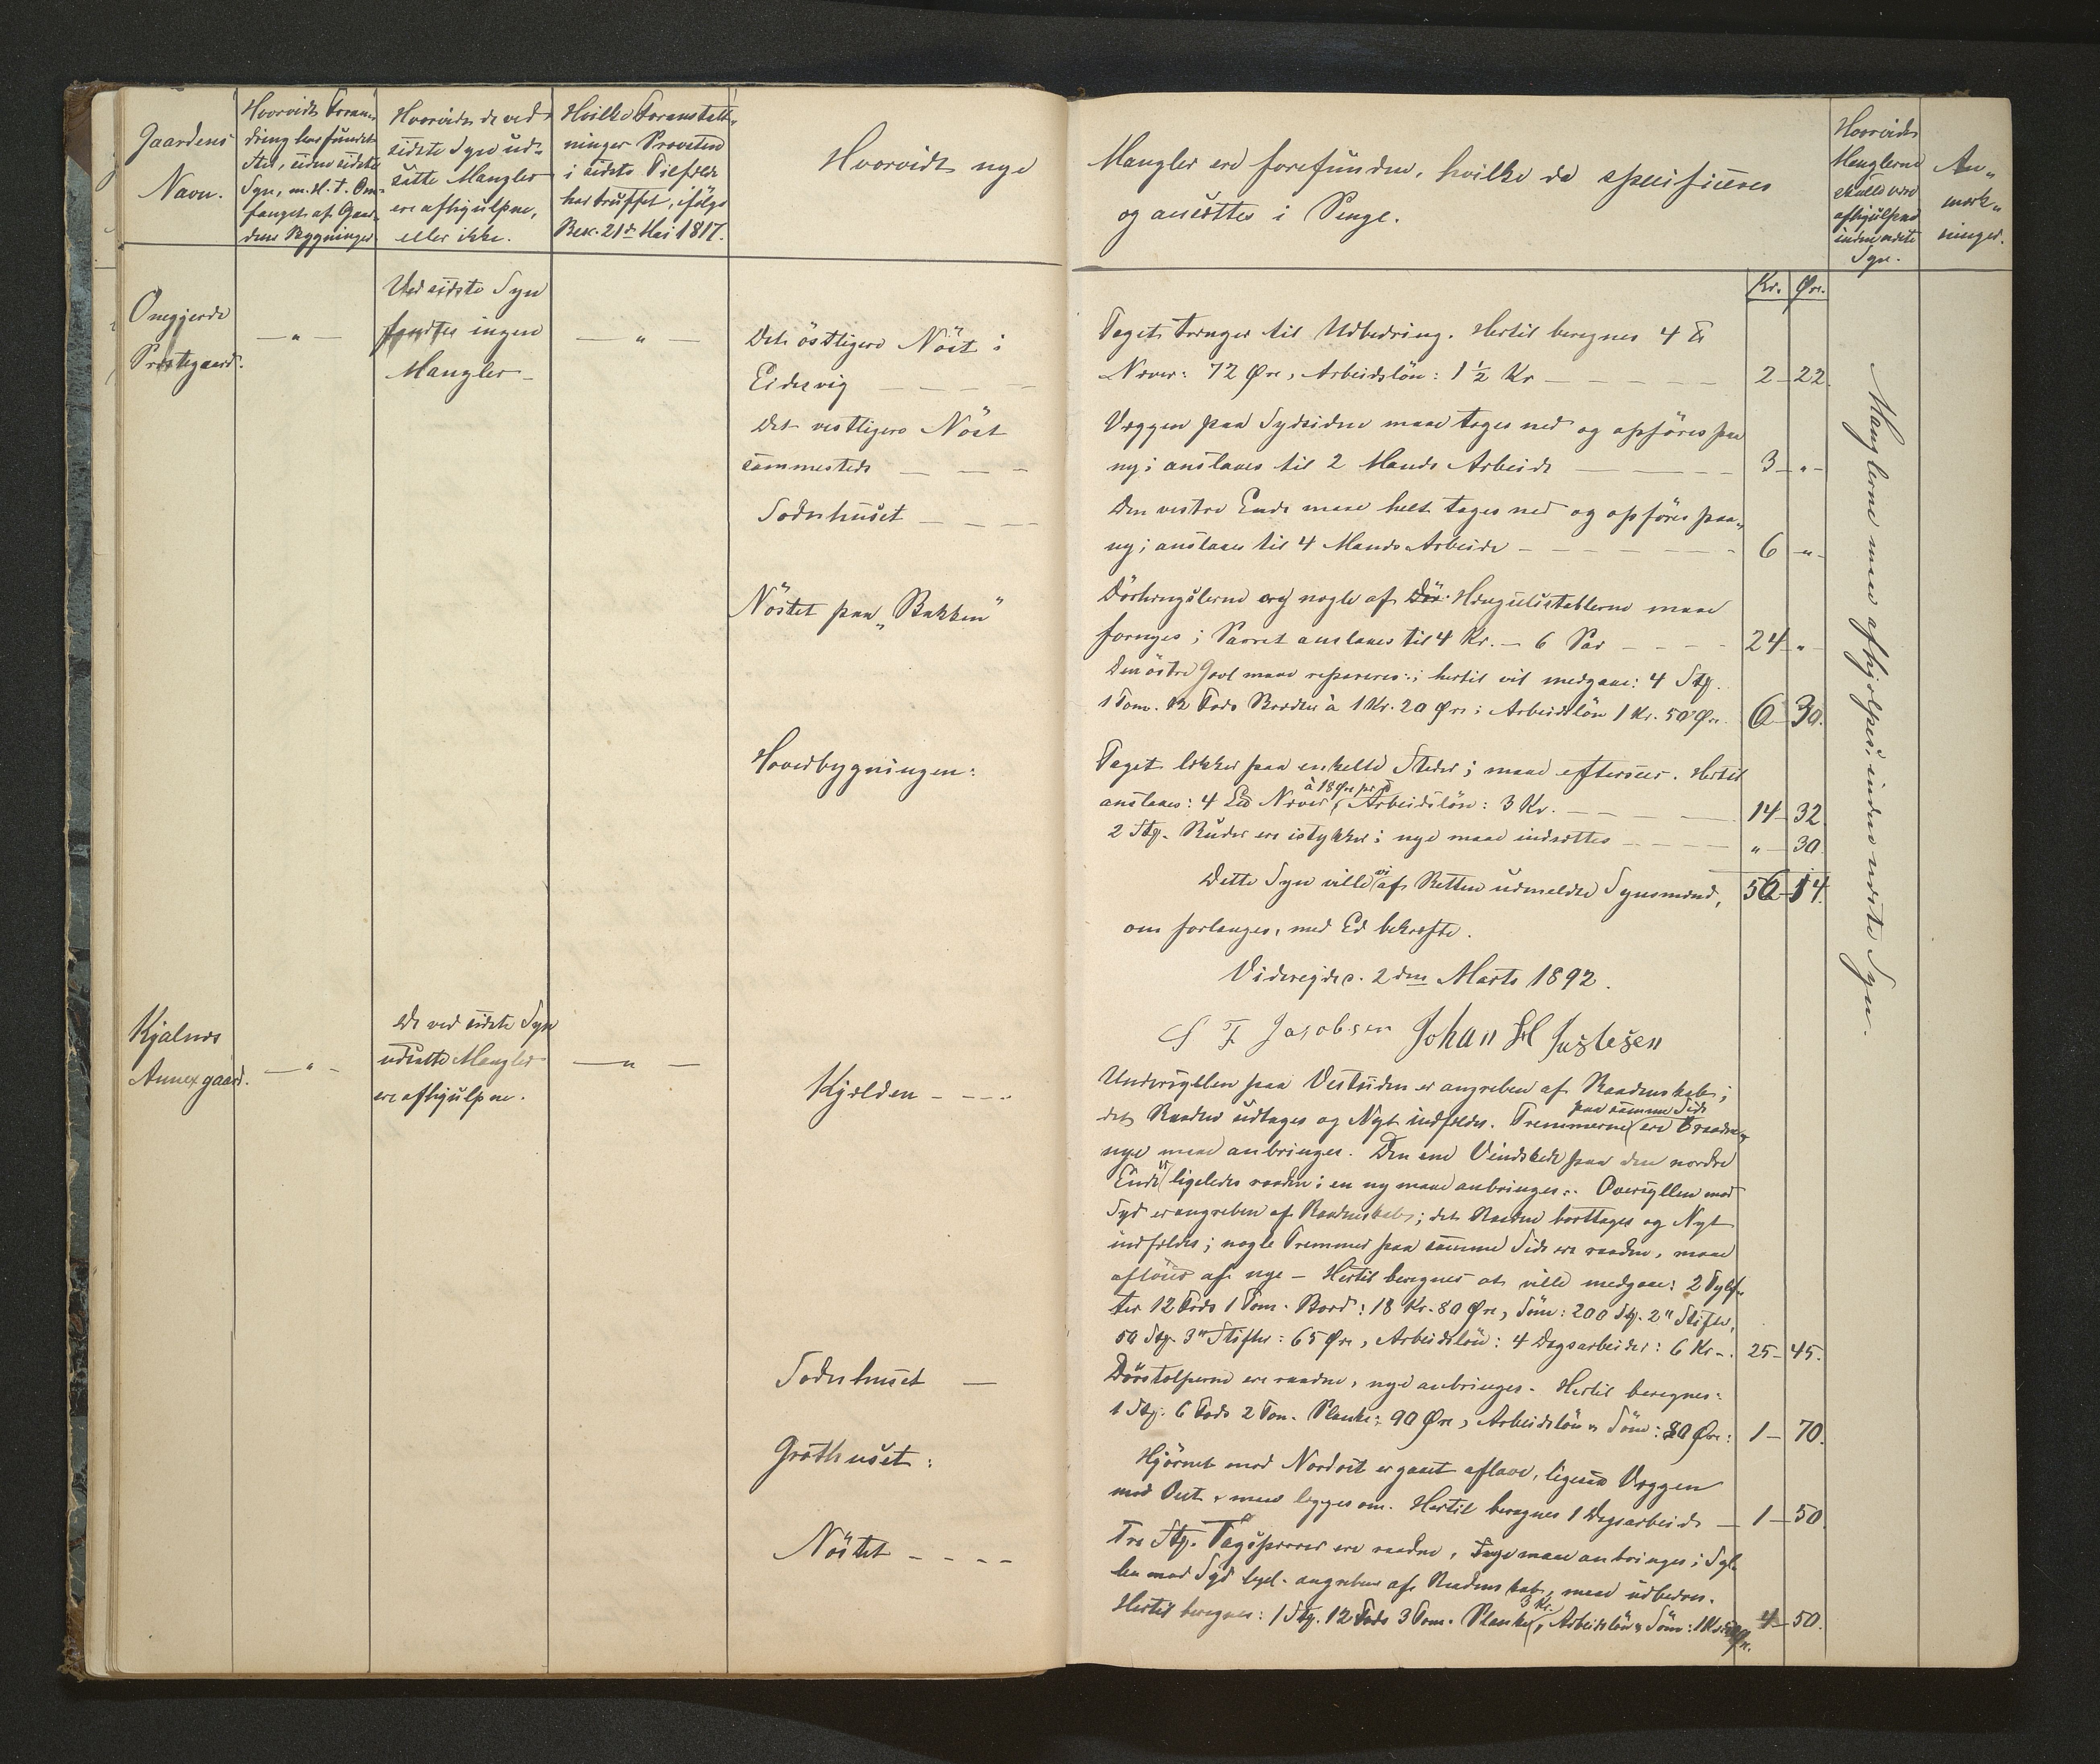 Gaardens
Navn.
Hvorvidt Foran-
dring har fundet
Sted, siden sidste
Syn, m. H. t. Om-
fanget af Gaar-
dens Bygninger
Hvorvidt de ved
sidste Syn ud-
satte Mangler
ere afhjulpne,
eller ikke.
Hvilke Foranstalt-
ninger Provsten
i sidste Tilfælde
har truffet, ifølge
Resc. 21de Mai 1817.
Hvorvidt nye
Mangler ere forefundne, hvilke da specificeres
og ansættes i Penge.
Hvorvidt
Manglerne
skulle være
afhjulpne
inden næste
Syn.
An-
mærk-
ninger.
Kr. Øre.
Onegjerde
Præstegaard.
— " —
Ved sidste Syn
fandtes ingen
Mangler —
— " —
Det östligere Nöst i
Eidevig — — —
Taget trænger til Udbedring. Hertil beregnes 4 ℔
Næver: 72 Øre, Arbeidslön: 1 ½ Kr — — — — — 2 — 22.
Det vestligere Nöst
sammesteds — — —
Væggen paa Sydsiden maa tages ned og opföres paa
ny; anslaaes til 2 Mands Arbeide — — — 3 — " —
Sodnhuset — — —
Den vestre Ende maa helt tages ned og opföres paa-
ny; anslaaes til 4 Mands Arbeide — — — — 6 — " —
Nöstet paa "Bakken"
Dörhængslerne og nogle af Dör Hængselstablerne maa
fornyes; Parret anslaaes til 4 Kr. — 6 Par — — — 24 — " —
Den östre Gavl maa repareres; hertil vil medgaae: 4 Stk.
1 Tom. 12 Fods Brædder à 1 Kr. 20 Øre; Arbeidslön 1 Kr. 50 Øre 6 — 30.
Hovedbygningen:
Taget lækker paa enkelte Steder; maa eftersees. Hertil
à 18 Øre pr ℔
anslaaes: 4 Næver, Arbeidslön: 3 Kr. — — — — 14 — 32.
2 Stk. Ruder ere istykker; nye maa indsættes — — — — " — 30.
Dette Syn ville vi af Retten udmeldte Synsmænd, 56 — 14.
om forlanges, med Ed bekræfte.
Videreide d. 2den Marts 1892.
S F Jacobsen Johan H Justesen
Manglerne maa afhjælpes inden næste Syn.
Kjalnes
Annexgaard.
— " —
De ved sidste Syn
udsatte Mangler
ere afhjulpne.
— " —
Kjælden — — —
Undersyllen paa Vestsiden er angreben af Raadenskab;
det Raadne udtages og Nyt indfældes. Tremmerne paa samme Side ere raadne,
nye maa anbringes. Den ene Vindskede paa den nordre
Ende er ligeledes raaden; en ny maa anbringes. Oversyllen mod
Syd er angreben af Raadenskab; det Raadne borttages og Nyt
indfældes; nogle Tremmer paa samme Side ere raadne, maa
aflöses af nye — Hertil beregnes at ville medgaae: 2 Tylf-
ter 12 Fods 1 Tom. Bord: 18 Kr. 80 Øre, Söm: 200 Stk. 2" Stifter,
50 Stk. 3" Stifter: 65 Øre, Arbeidslön: 4 Dagsarbeider: 6 Kr —. 25 — 45.
Sodnhuset —
Dörstolperne ere raadne, nye anbringes. Hertil beregnes:
1 Stk. 6 Fods 2 Tom. Planke: 90 Øre, Arbeidslön & Söm: 80 Øre: 1 — 70.
Grothuset:
Hjörnet mod Nordost er gaaet aflave, ligesaa Væggen
mod Öst, maa lægges om. Hertil beregnes 1 Dagsarbeide — 1 — 50.
Nöstet — — — —
Tre Stk. Tagsperrer ere raadne, nye maa anbringes; Syl-
len mod Syd ligel. angreben af Raadenskab, maa udbedres.
Hertil beregnes: 1 Stk. 12 Fods 3 Tom. Planke, 3 Kr. Arbeidslön & Söm: 1 Kr 50 Ør. 4 — 50.